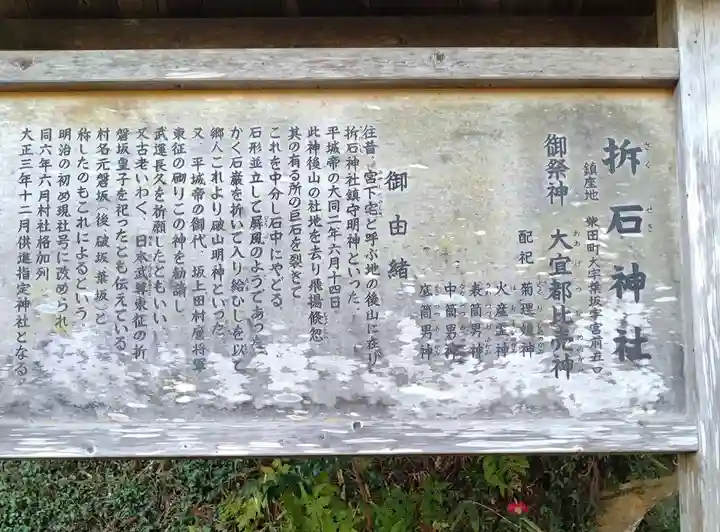 折石神社
さくせき
鎮座地 柴田町大字葉坂字宮前五口
御祭神 大宜都比売神
おおげつひめのかみ
配祀 菊理媛神
火産霊神
表筒男神
中筒男神
底筒男神
御由緒
往昔、宮下宅と呼ぶ地の後山に在り
折石神社鎮守明神といった。
平城帝の大同二年六月十四日
此神後山の社地を去り飛揚倏忽
其の有る所の巨石を裂きて
これを中分し石中にやどる
石形並立して屏風のようであった。
かく石巌を折いて入り給ひしを以て
郷人これより破山明神といった。
又、平城帝の御代、坂上田村麿将軍
東征の砌りこの神を勧請し
武運長久を祈願したともいい、
又古老いわく、日本武尊東征の折
磐坂皇子を祀ったとも伝えている。
村名元磐坂、後、破坂(葉坂)と
称したのもこれによるという。
明治の初め現社号に改められ
同六年六月村社格加列
大正三年十二月供進指定神社となる。